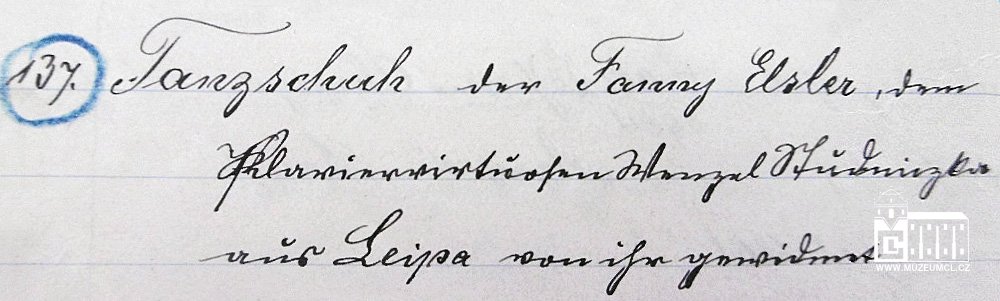 137. Tanzschuh der Fanny Elsler, dem
Klaviervirtuosen Wenzel Studnizka
aus Leipa von ihr gewidmet
WWW.MUZEUMCL.CZ